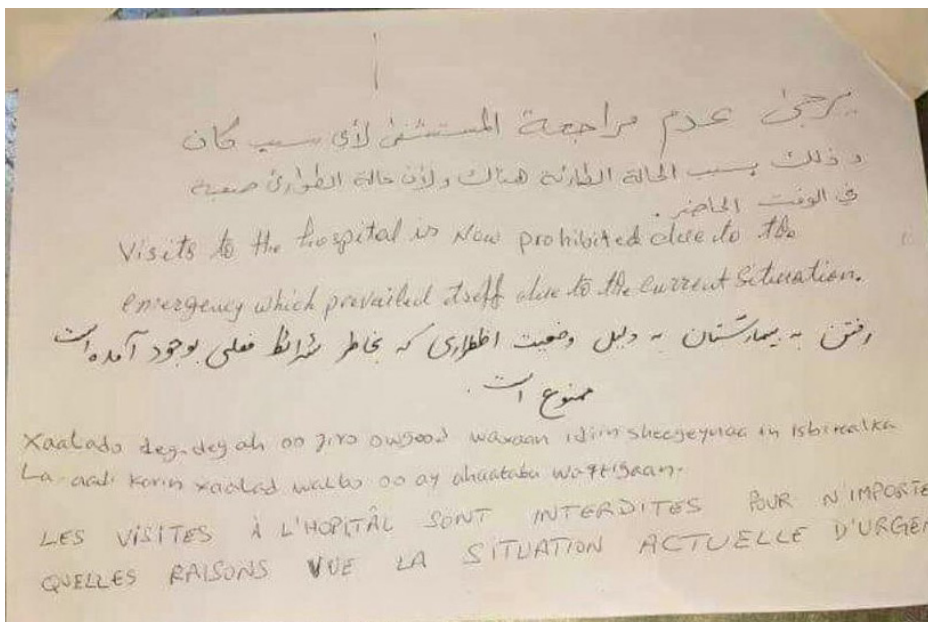 يرجى عدم مراجعة المستشفى لأي سبب كان
و ذلك بسبب الحالة الطارئة هناك ولأن حالة الطوارئ صعبة
في الوقت الحاضر.
Visits to the hospital is Now prohibited due to the
emergency which prevailed itself due to the current Situation.
رفتن به بیمارستان به دلیل وضعیت اظطراری که بخاطر شرائط فعلی بوجود آمده است
ممنوع است.
Xaalado deg.deg ah oo jiro owgood waxaan idiin sheegeynaa in isbitaalka
La aadi karin xaalad walbo oo ay ahaatabu waqtigaan.
LES VISITES À L'HOPITÂL SONT INTERDITES POUR N'IMPORTE
QUELLES RAISONS VUE LA SITUATION ACTUELLE D'URGEN